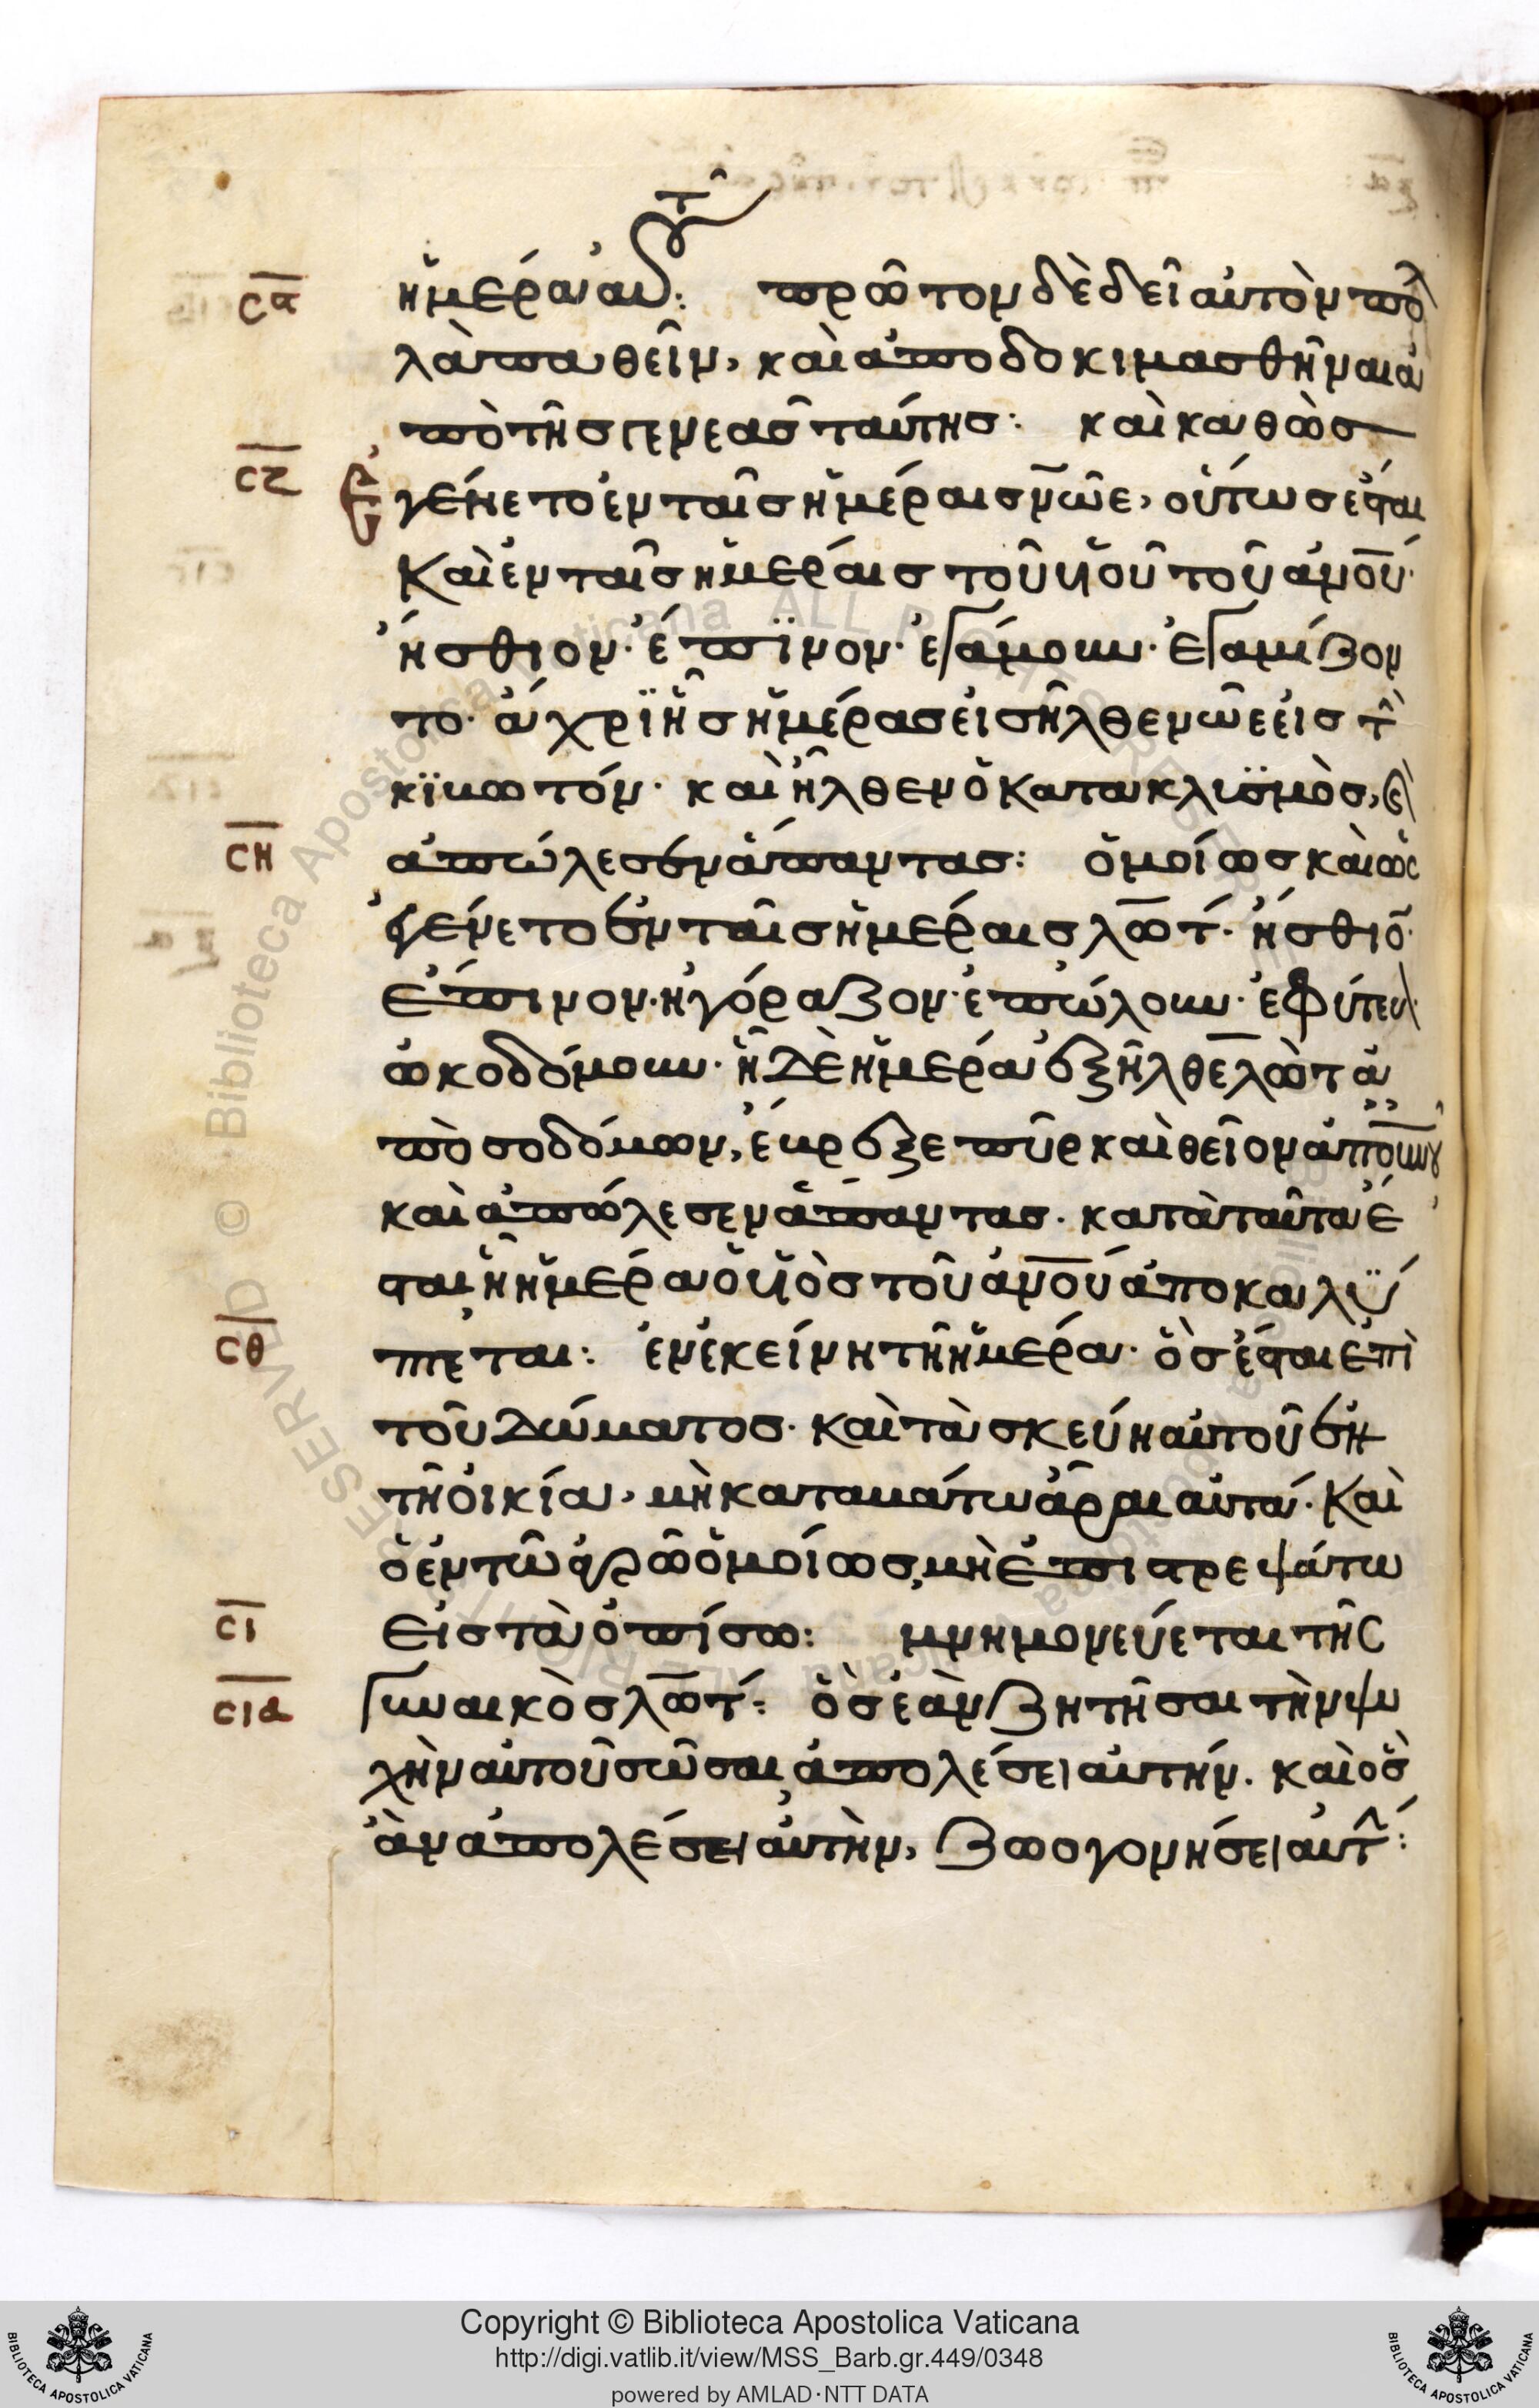 ἡμέρα αυτ͂:
σα πρῶτον δὲ δεῖ αὐτὸν πολ
λὰ παθεῖν, καὶ ἀποδοκιμασθῆναι ἀ
πὸ τῆς γενεᾶς ταύτης: καὶ καθὼς
σζ ἐγένετο ἐν ταῖς ἡμέραις νῶε, οὕτως ἔσται
καὶ ἐν ταῖς ἡμέραις τοῦ υἱοῦ τοῦ ἀνου·
ἤσθιον· ἔπϊνον· ἐγάμουν· ἐγαμίζον
το· ἄχρϊ ἧς ἡμέρας εἰσῆλθεν νῶε εἰς τ
κϊβωτόν· καὶ ἦλθεν ὁ κατακλυσμὸς, κ
ση ἀπώλεσεν ἅπαντας: ὁμοίως καὶ ὡς
ἐγένετο ἐν ταῖς ἡμέραις λώτ· ἤσθιο
ἔπινον· ἠγόραζον· ἐπώλουν· ἐφύτευ
ὠκοδόμουν· ἧ δὲ ἡμέρα ἐξῆλθε λὼτ ἀ
πὸ σοδόμων, ἔβρεξε πῦρ καὶ θεῖον ἀπ οὐνου
καὶ ἀπώλεσεν ἅπαντας· κατὰ ταῦτα ἔ
σται ἧ ἡμέρα ὁ υἱὸς τοῦ ἀνου ἀποκαλύ
σθ πτεται: ἐν ἐκείνη τῆ ἡμέρα· ὃς ἔσται ἐπὶ
τοῦ δώματος· καὶ τὰ σκεύη αὐτοῦ ἐν
τῆ οἰκία, μὴ καταβάτω ἆραι αὐτά· καὶ
ὁ ἐν τῶ ἀγρῶ ὁμοίως, μὴ ἐπιστρεψάτω
σι εἰς τὰ ὀπίσω: μνημονεύεται τῆς
σια γυναικὸς λώτ: ὃς ἐὰν ζητῆσαι τὴν ψυ
χὴν αὐτοῦ σῶσαι ἀπολέσει αὐτήν. καὶ ὃς
ἂν ἀπολέσει αὐτὴν, ζωογονήσει αὐτ:
Copyright © Biblioteca Apostolica Vaticana
http://digi.vatlib.it/view/MSS_Barb.gr.449/0348
powered by AMLAD·NTT DATA